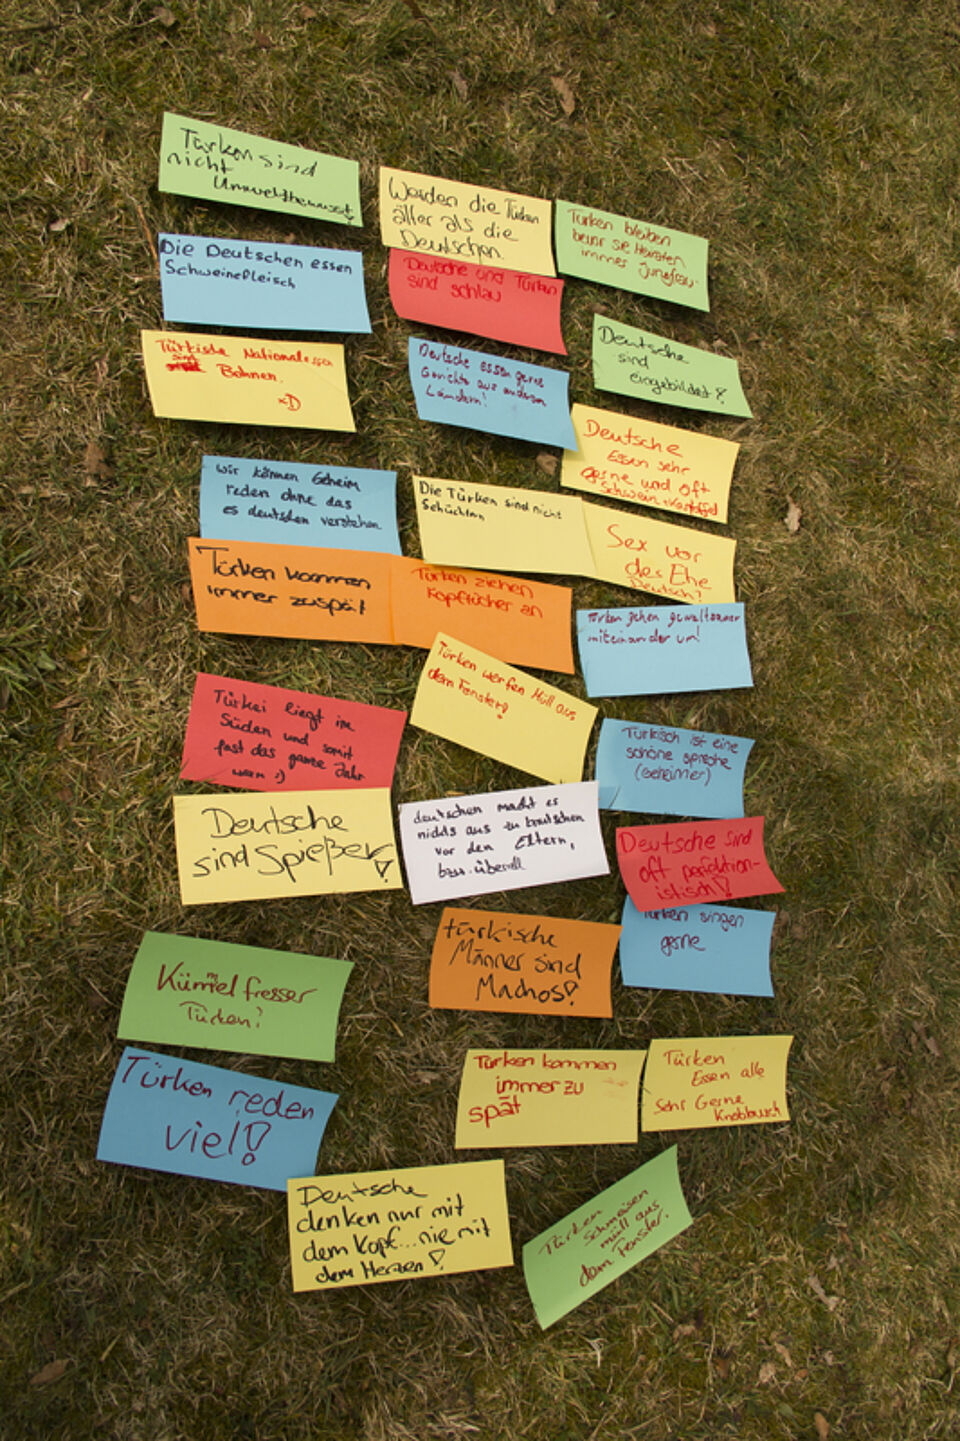 Türken sind
nicht
Umweltbewusst
Werden die Türken
äller als die
Deutschen.
Türken bleiben
bevor sie Heiraten
immer Jungfrau
Die Deutschen essen
Schweinefleisch
Deutsche und Türken
sind schlau
Türkische Nationalessen
sind
Bohnen.
xD
Deutsche essen gerne
Gerichte aus anderen
Ländern!
Deutsche
sind
eingebildet!
Deutsche
Essen sehr
gerne und oft
Schwein + Kartoffel
Wir können Geheim
reden ohne das
es deutschen verstehen
Die Türken sind nicht
Schüchtern
Sex vor
des Ehe
Deutsch?
Türken kommen
immer zuspät
Türken ziehen
Kopftücher an
Türken gehen gewaltsamer
miteinander um!
Türken werfen Müll aus
dem Fenster!
Türkei liegt im
Süden und somit
fast das ganze Jahr
warm :)
Türkisch ist eine
schöne sprache
(Geheimer)
Deutsche
sind Spießer!
deutschen macht es
nichts aus zu knutschen
vor den Eltern,
bzw. überall
Deutsche sind
oft perfektion-
istisch!
Türken singen
gerne
türkische
Männer sind
Machos!
Kümmel fresser
Türken?
Türken reden
viel!
Türken kommen
immer zu
spät
Türken
Essen alle
Sehr Gerne
Knoblauch
Deutsche
denken nur mit
dem Kopf...nie mit
dem Herzen!
Türken
Schmeisen
müll aus
dem Fenster.